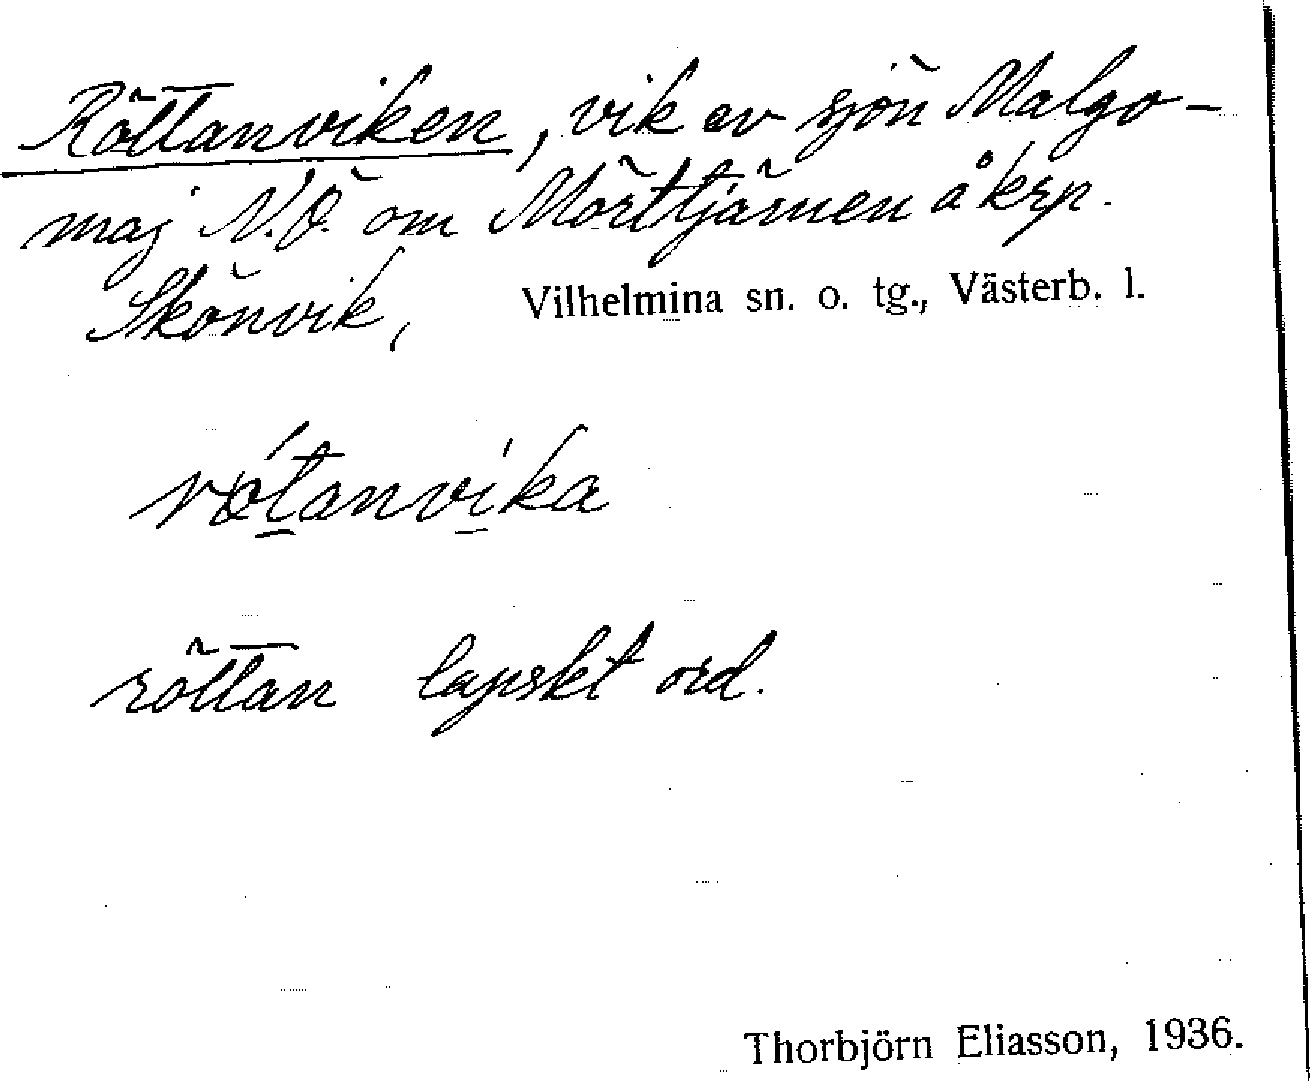 Röttanviken, vik av sjön Malgo-
maj N.Ö. om Mörttjärnen å krp.
Skönvik, Vilhelmina sn. o. tg., Västerb. l.
röttan lapskt ord.
Thorbjörn Eliasson, 1936.